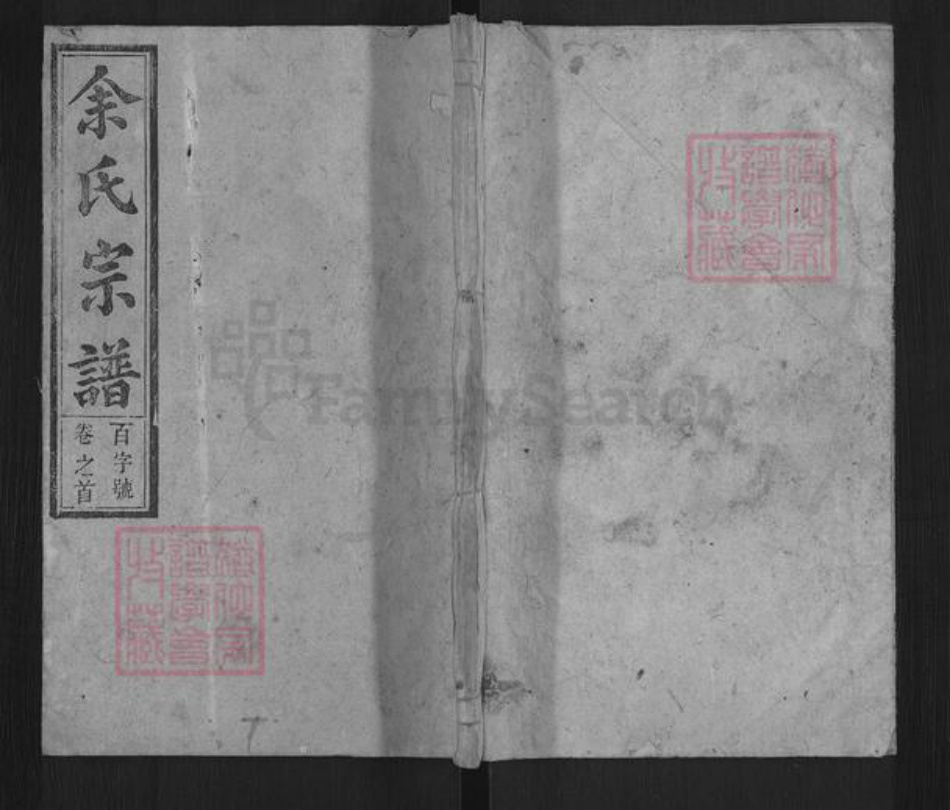 余氏宗譜
百字號
卷之首
FamilySearch